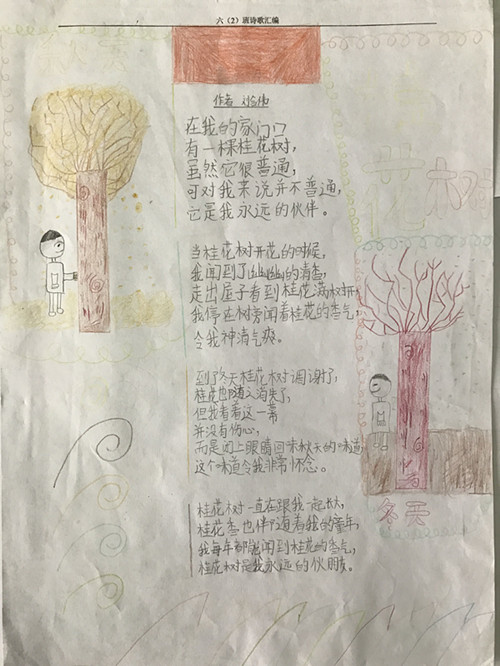 六（2）班诗歌汇编
秋天
作者
在我的家门口
有一棵桂花树，
虽然它很普通，
可对我来说并不普通，
它是我永远的伙伴。
当桂花树开花的时候，
我闻到了幽幽的清香，
走出屋子看到桂花满树开，
我停在树旁闻着桂花的香气，
令我神清气爽。
到了冬天桂花树凋谢了，
桂花也随之消失了，
但我看着这一幕
并没有伤心，
而是闭上眼睛回味秋天的味道
这个味道令我非常怀念。
冬天
桂花树一直在跟我一起长大，
桂花香也伴随着我的童年，
我每年都能闻到桂花的香气，
桂花树是我永远的伙朋友。